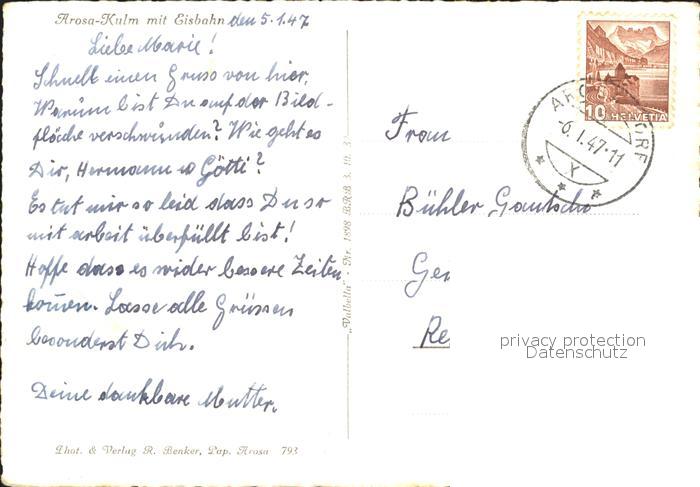 Arosa-Kulm mit Eisbahn den 5.1.47
Liebe Marie!
Schnell einen Gruss von hier.
Warum bist Du auf der Bild-
fläche verschwunden? Wie geht es
Dir, Hermann u Götti?
Es tut mir so leid dass Du so
mit arbeit überfüllt bist!
Hoffe dass es wider bessere Zeiten
kommen. Lasse alle Grüssen
besonderst Dich.
Deine dankbare Mutter.
Phot. & Verlag R. Benker, Pap. Arosa 793
„Valbella" - Nr. 1898 BRB 3. 10. 3
10 HELVETIA
AROSA DORF
-6.1.47-11
X
Frau
Bühler Gautschi
Ger
Re
privacy protection
Datenschutz